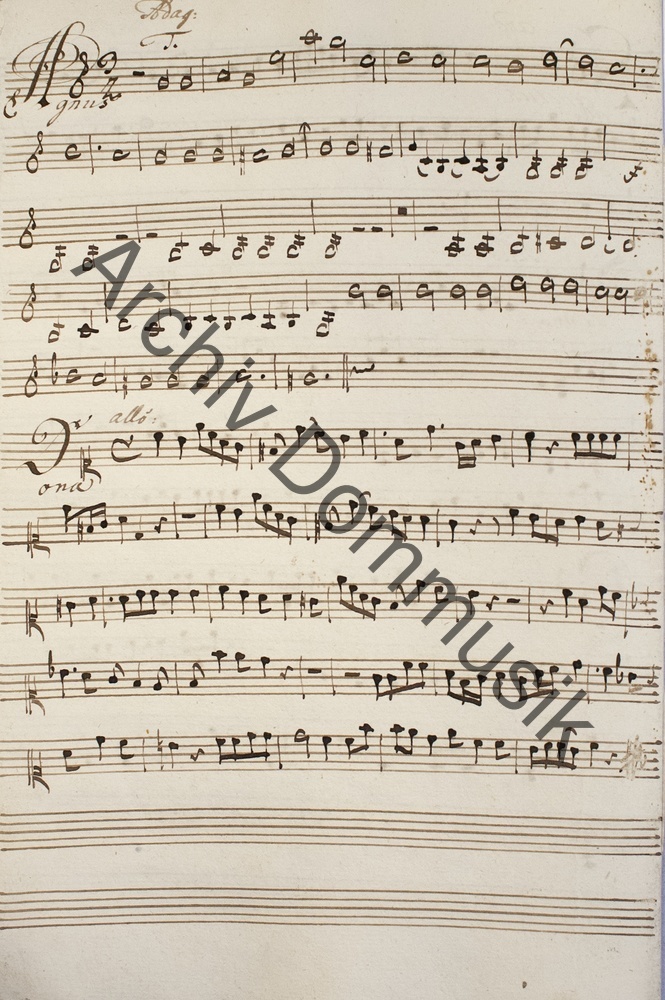 Adag:
T.
Agnus
f.
allo:
Dona
Archiv Dommusik